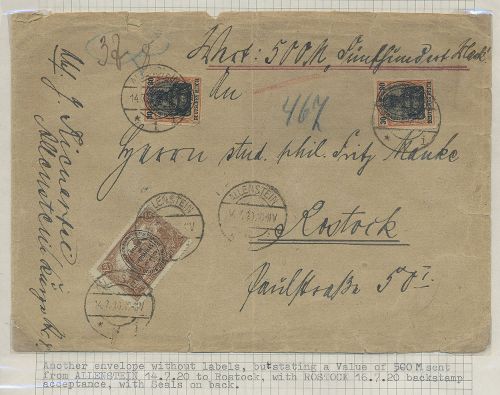 37
Wert: 500 M, Fünfhundert Mark
An
467
Herrn stud. phil. Fritz
Rostock
Paulstraße 50 I
Abs.
Allenstein
ALLENSTEIN
14.7.20
ALLENSTEIN
30
30
DEUTSCHES REICH
Another envelope without labels, but stating a Value of 500 M sent
from ALLENSTEIN 14.7.20 to Rostock, with ROSTOCK 16.7.20 backstamp
acceptance, with Seals on back.